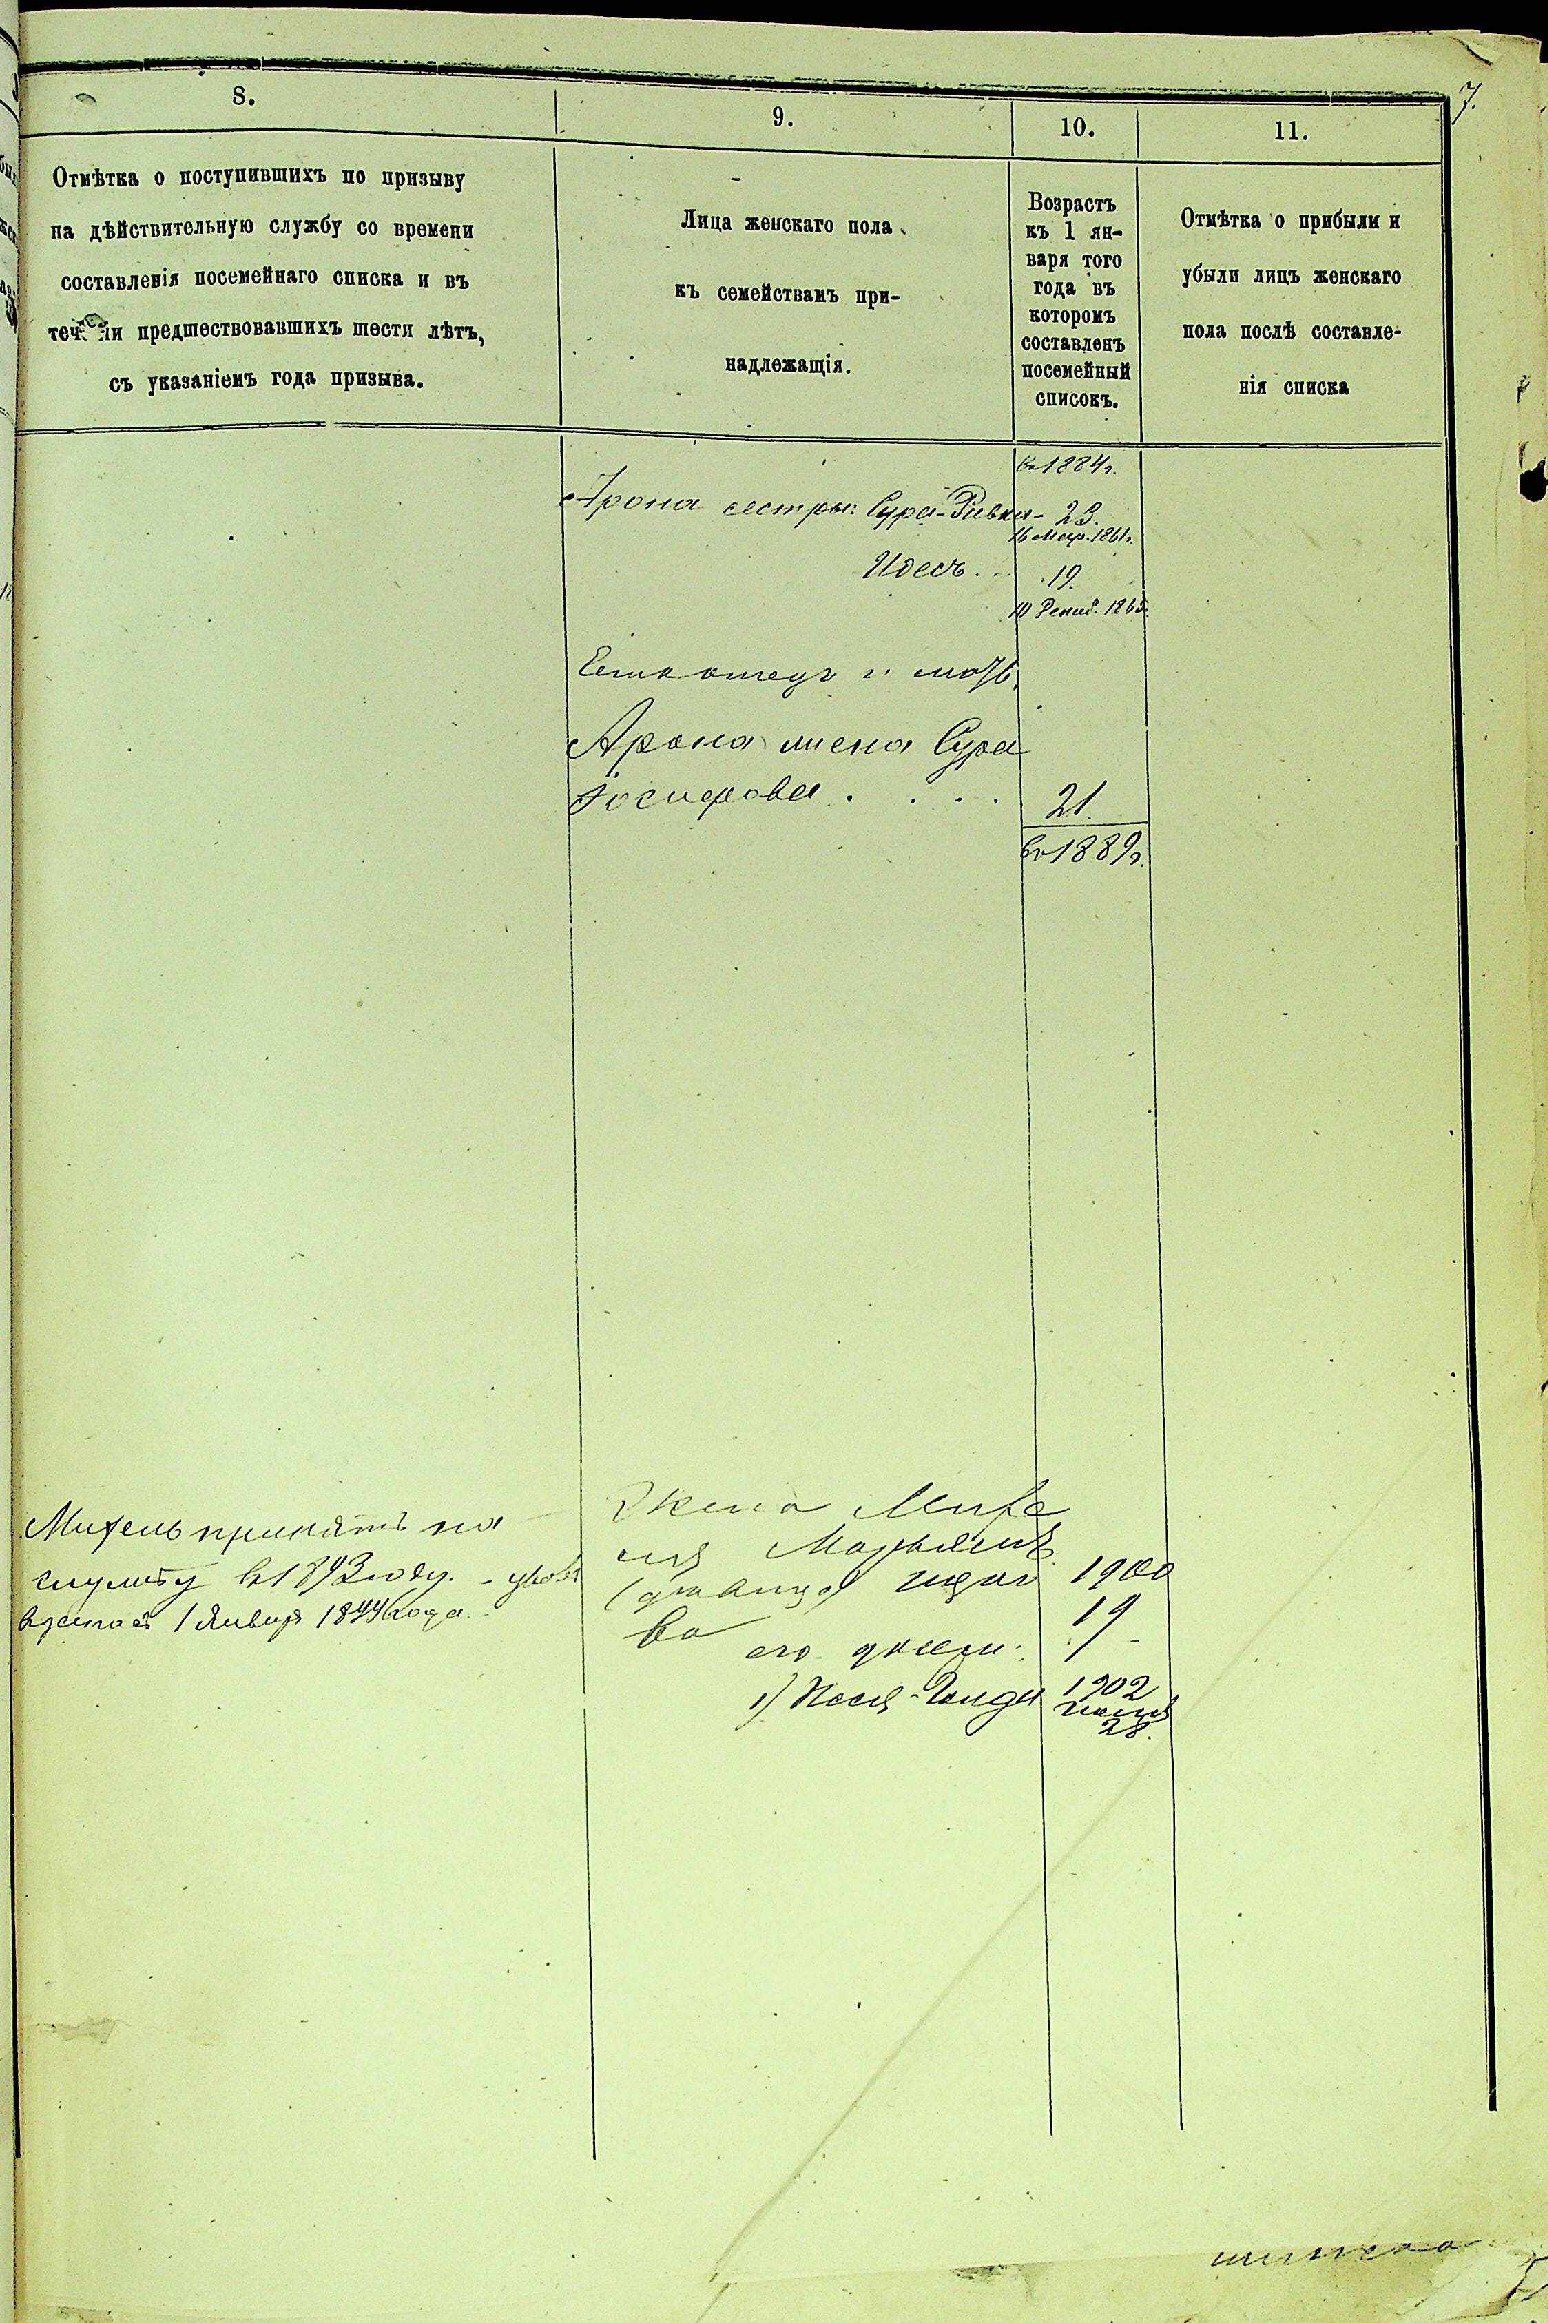 7.
8.
9.
10.
11.
Отмѣтка о поступившихъ по призыву
на дѣйствительную службу со времени
составленія посемейнаго списка и въ
теченіи предшествовавшихъ шести лѣтъ,
съ указаніемъ года призыва.
Лица женскаго пола
къ семействамъ при-
надлежащія.
Возрастъ
къ 1 ян-
варя того
года въ
которомъ
составленъ
посемейный
списокъ.
Отмѣтка о прибыли и
убыли лицъ женскаго
пола послѣ составле-
нія списка
Въ 1884 г.
Арона сестры: Сура-Ривка - 23.
16 Мар. 1861 г.
Идесъ ... 19.
10 1865.
Есть отецъ и мать.
Арона жена Сура
Іосифова . . . . 21.
Въ 1889 г.
Михель принятъ на
службу въ 1893 году.
1 Января 1894 года.
Жена Михе
ля Марьяся
(девица)
ва
1900
19
его дочери:
1) Песя-Гинда 1902
28.